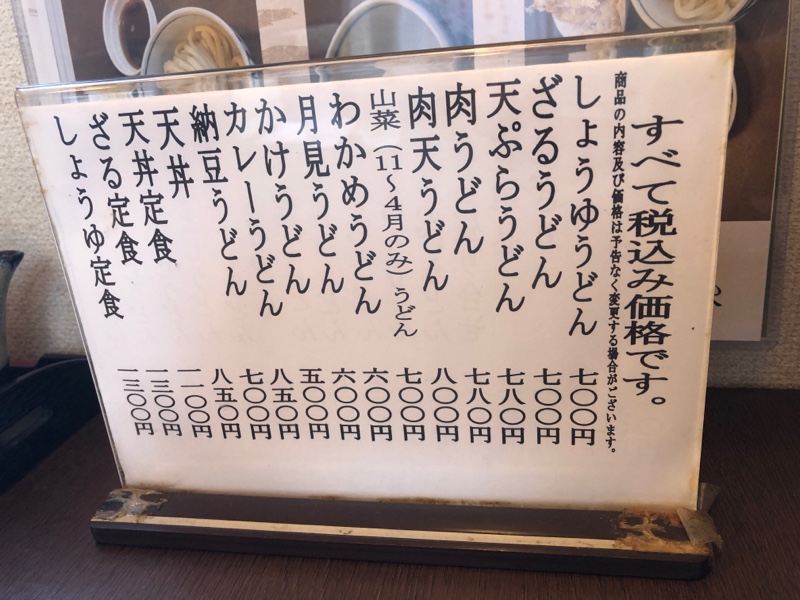 すべて税込み価格です。
商品の内容及び価格は予告なく変更する場合がございます。
しょうゆうどん 七〇〇円
ざるうどん 七〇〇円
天ぷらうどん 七八〇円
肉うどん 七八〇円
肉天うどん 八〇〇円
山菜（11～4月のみ）うどん 七〇〇円
わかめうどん 六〇〇円
月見うどん 六〇〇円
かけうどん 五〇〇円
カレーうどん 八五〇円
納豆うどん 七〇〇円
天丼 八五〇円
天丼定食 一一〇〇円
ざる定食 一三〇〇円
しょうゆ定食 一三〇〇円